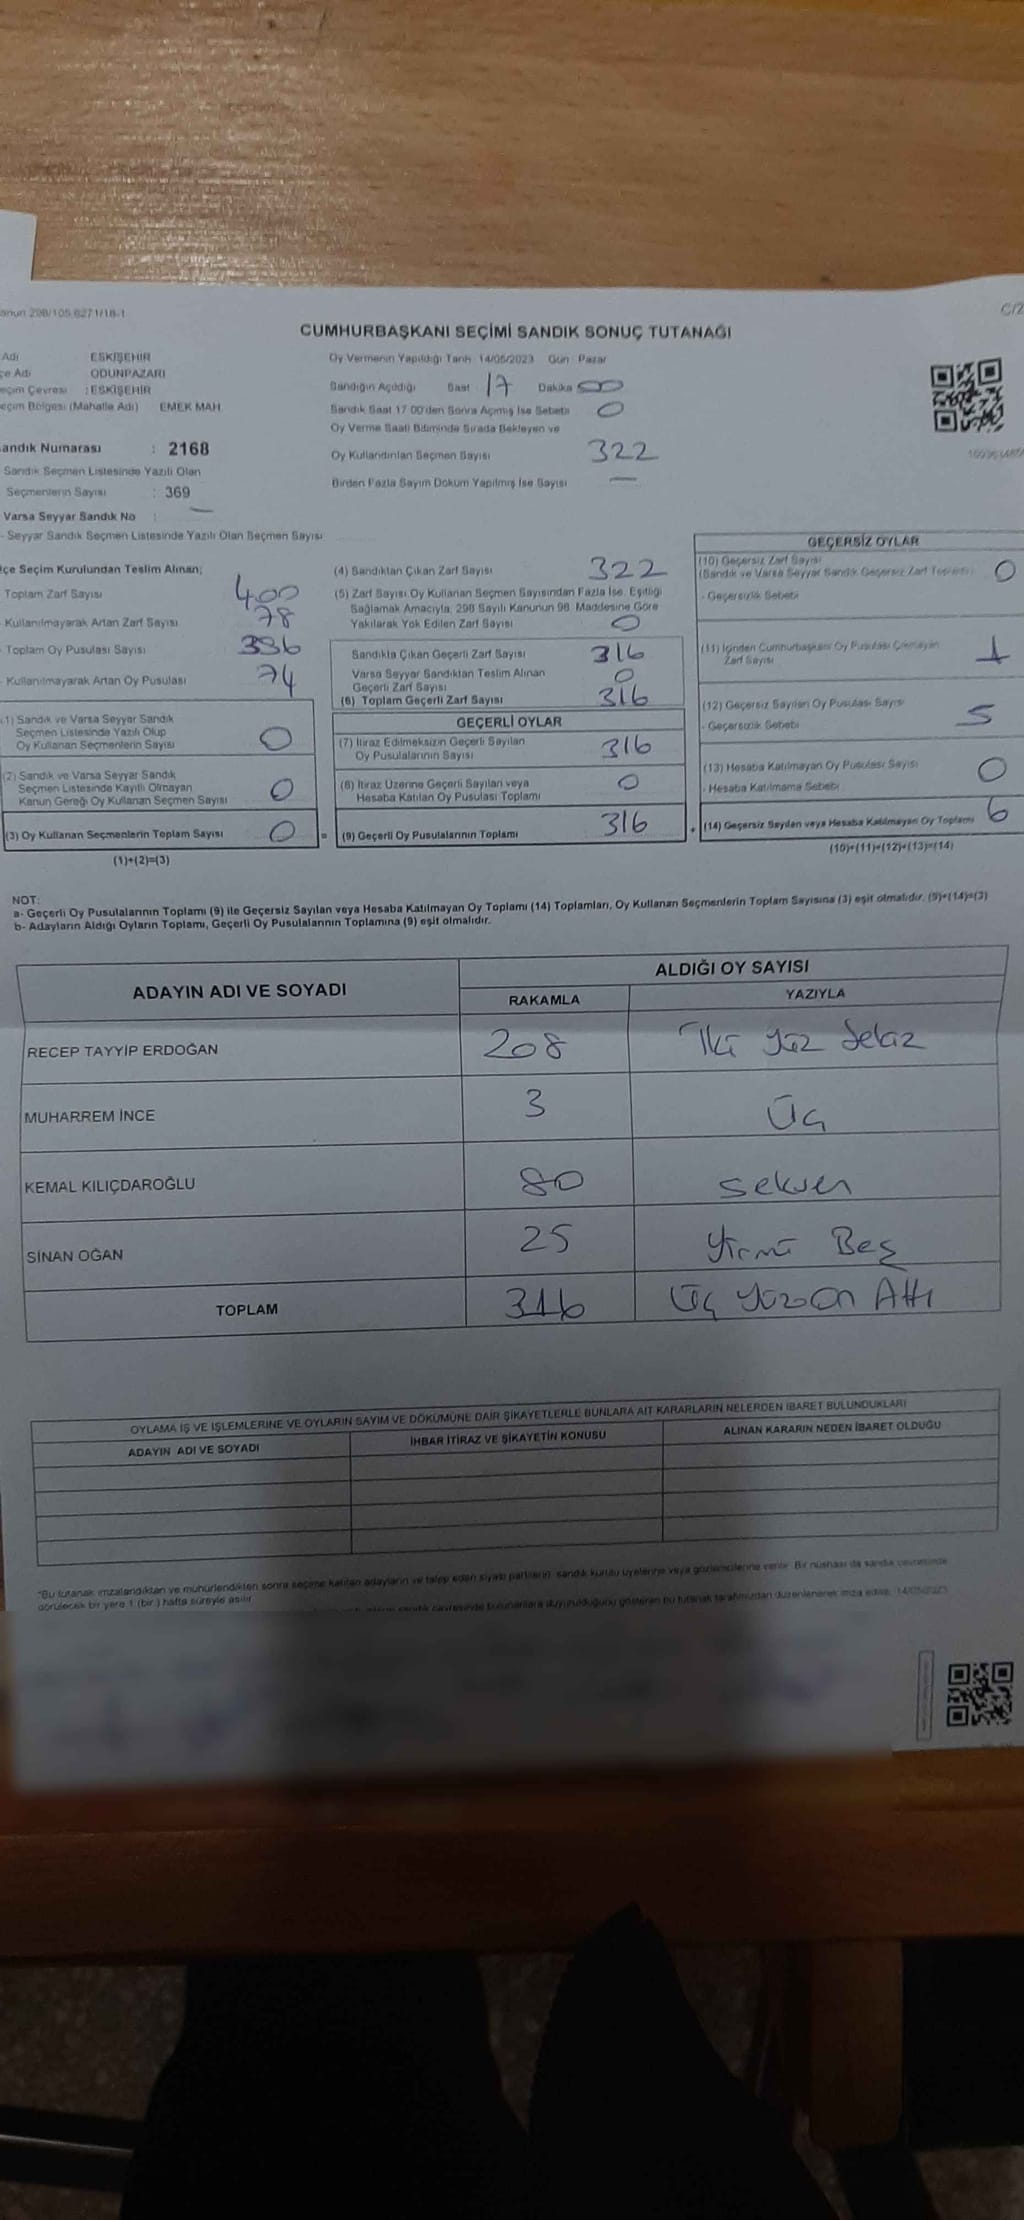 CUMHURBAŞKANI SEÇİMİ SANDIK SONUÇ TUTANAĞI
C/2
Adı ESKİŞEHİR
çe Adı ODUNPAZARI
eçim Çevresi : ESKİŞEHİR
eçim Bölgesi (Mahalle Adı) EMEK MAH.
andık Numarası : 2168
Sandık Seçmen Listesinde Yazılı Olan
Seçmenlerin Sayısı : 369
Varsa Seyyar Sandık No :
- Seyyar Sandık Seçmen Listesinde Yazılı Olan Seçmen Sayısı
Oy Vermenin Yapıldığı Tarih 14/05/2023 Gün : Pazar
Sandığın Açıldığı Saat 17 Dakika 00
Sandık Saat 17 00'den Sonra Açımış İse Sebebi 0
Oy Verme Saati Bitiminde Sırada Bekleyen ve
Oy Kullandırılan Seçmen Sayısı 322
Birden Fazla Sayım Döküm Yapılmış İse Sayısı —
lçe Seçim Kurulundan Teslim Alınan;
Toplam Zarf Sayısı 400
Kullanılmayarak Artan Zarf Sayısı 78
Toplam Oy Pusulası Sayısı 396
Kullanılmayarak Artan Oy Pusulası 74
(1) Sandık ve Varsa Seyyar Sandık
Seçmen Listesinde Yazılı Olup
Oy Kullanan Seçmenlerin Sayısı 0
(2) Sandık ve Varsa Seyyar Sandık
Seçmen Listesinde Kayıtlı Olmayan
Kanun Gereği Oy Kullanan Seçmen Sayısı 0
(3) Oy Kullanan Seçmenlerin Toplam Sayısı 0 =
(1)+(2)=(3)
(4) Sandıktan Çıkan Zarf Sayısı 322
(5) Zarf Sayısı Oy Kullanan Seçmen Sayısından Fazla İse, Eşitliği
Sağlamak Amacıyla, 298 Sayılı Kanunun 98. Maddesine Göre
Yakılarak Yok Edilen Zarf Sayısı 0
Sandıkta Çıkan Geçerli Zarf Sayısı 316
Varsa Seyyar Sandıktan Teslim Alınan
Geçerli Zarf Sayısı 0
(6) Toplam Geçerli Zarf Sayısı 316
GEÇERLİ OYLAR
(7) İtiraz Edilmeksizin Geçerli Sayılan
Oy Pusulalarının Sayısı 316
(8) İtiraz Üzerine Geçerli Sayılan veya
Hesaba Katılan Oy Pusulası Toplamı 0
(9) Geçerli Oy Pusulalarının Toplamı 316 +
GEÇERSİZ OYLAR
(10) Geçersiz Zarf Sayısı
(Sandık ve Varsa Seyyar Sandık Geçersiz Zarf Toplamı) 0
- Geçersizlik Sebebi
(11) İçinden Cumhurbaşkanı Oy Pusulası Çıkmayan
Zarf Sayısı 1
(12) Geçersiz Sayılan Oy Pusulası Sayısı 5
- Geçersizlik Sebebi
(13) Hesaba Katılmayan Oy Pusulası Sayısı 0
- Hesaba Katılmama Sebebi
(14) Geçersiz Sayılan veya Hesaba Katılmayan Oy Toplamı 6
(10)+(11)+(12)+(13)=(14)
NOT:
a- Geçerli Oy Pusulalarının Toplamı (9) ile Geçersiz Sayılan veya Hesaba Katılmayan Oy Toplamı (14) Toplamları, Oy Kullanan Seçmenlerin Toplam Sayısına (3) eşit olmalıdır. (9)+(14)=(3)
b- Adayların Aldığı Oyların Toplamı, Geçerli Oy Pusulalarının Toplamına (9) eşit olmalıdır.
ADAYIN ADI VE SOYADI ALDIĞI OY SAYISI
RAKAMLA YAZIYLA
RECEP TAYYİP ERDOĞAN 208 İki yüz Sekiz
MUHARREM İNCE 3 Üç
KEMAL KILIÇDAROĞLU 80 Seksen
SİNAN OĞAN 25 Yirmi Beş
TOPLAM 316 Üç Yüz On Altı
OYLAMA İŞ VE İŞLEMLERİNE VE OYLARIN SAYIM VE DÖKÜMÜNE DAİR ŞİKAYETLERLE BUNLARA AİT KARARLARIN NELERDEN İBARET BULUNDUKLARI
ADAYIN ADI VE SOYADI İHBAR İTİRAZ VE ŞİKAYETİN KONUSU ALINAN KARARIN NEDEN İBARET OLDUĞU
"Bu tutanak imzalandıktan ve mühürlendikten sonra seçime katılan adayların ve talep eden siyasi partilerin sandık kurulu üyelerine veya gözlemcilerine verilir. Bir nüshası da sandık çevresinde
görülecek bir yere 1 (bir) hafta süreyle asılır.
bulunanlara duyurulduğunu gösteren bu tutanak tarafımızdan düzenlenerek imza edildi. 14/05/2023